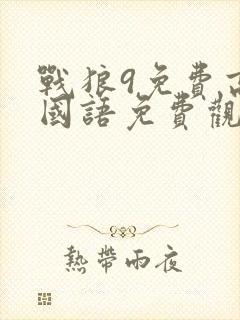 戰狼9免費高
國語免費觀
熱帶雨夜